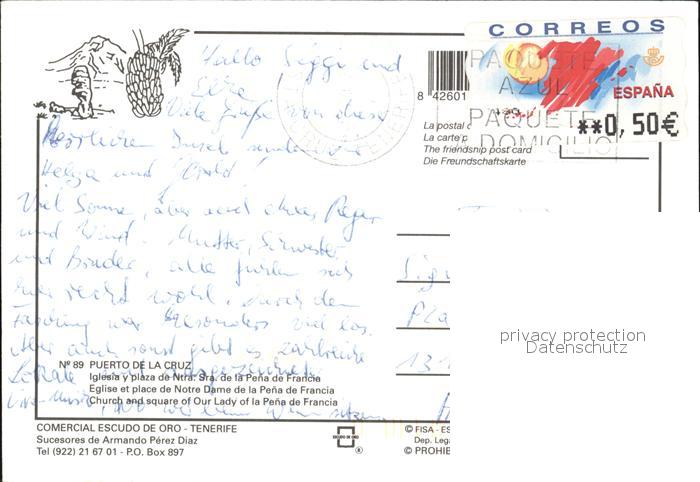 CORREOS
PAQUETE
AZUL
ESPAÑA
PAQUETE
**0,50€
DOMICILIO
8 42601
La postal
La carte p
The friendship post card
Die Freundschaftskarte
Hallo Siggi und
Viele Grüße von dieser
herrlichen Insel senden
Helga und
Viel Sonne, aber auch etwas Regen
und Wind. Mutter, Schwester
und Bruder, alle fühlen sich
hier recht wohl. Durch den
Fasching war besonders viel los.
Aber auch sonst gibt es zahlreiche
Lokale mit
Live-Musik, wo wir beim Wein sitzen.
Sig
Pla
131
privacy protection
Datenschutz
Nº 89 PUERTO DE LA CRUZ
Iglesia y plaza de Ntra. Sra. de la Peña de Francia
Eglise et place de Notre Dame de la Peña de Francia
Church and square of Our Lady of la Peña de Francia
COMERCIAL ESCUDO DE ORO - TENERIFE
Sucesores de Armando Pérez Diaz
Tel (922) 21 67 01 - P.O. Box 897
ESCUDO DE ORO
®
© FISA - ES
Dep. Lega
© PROHIB